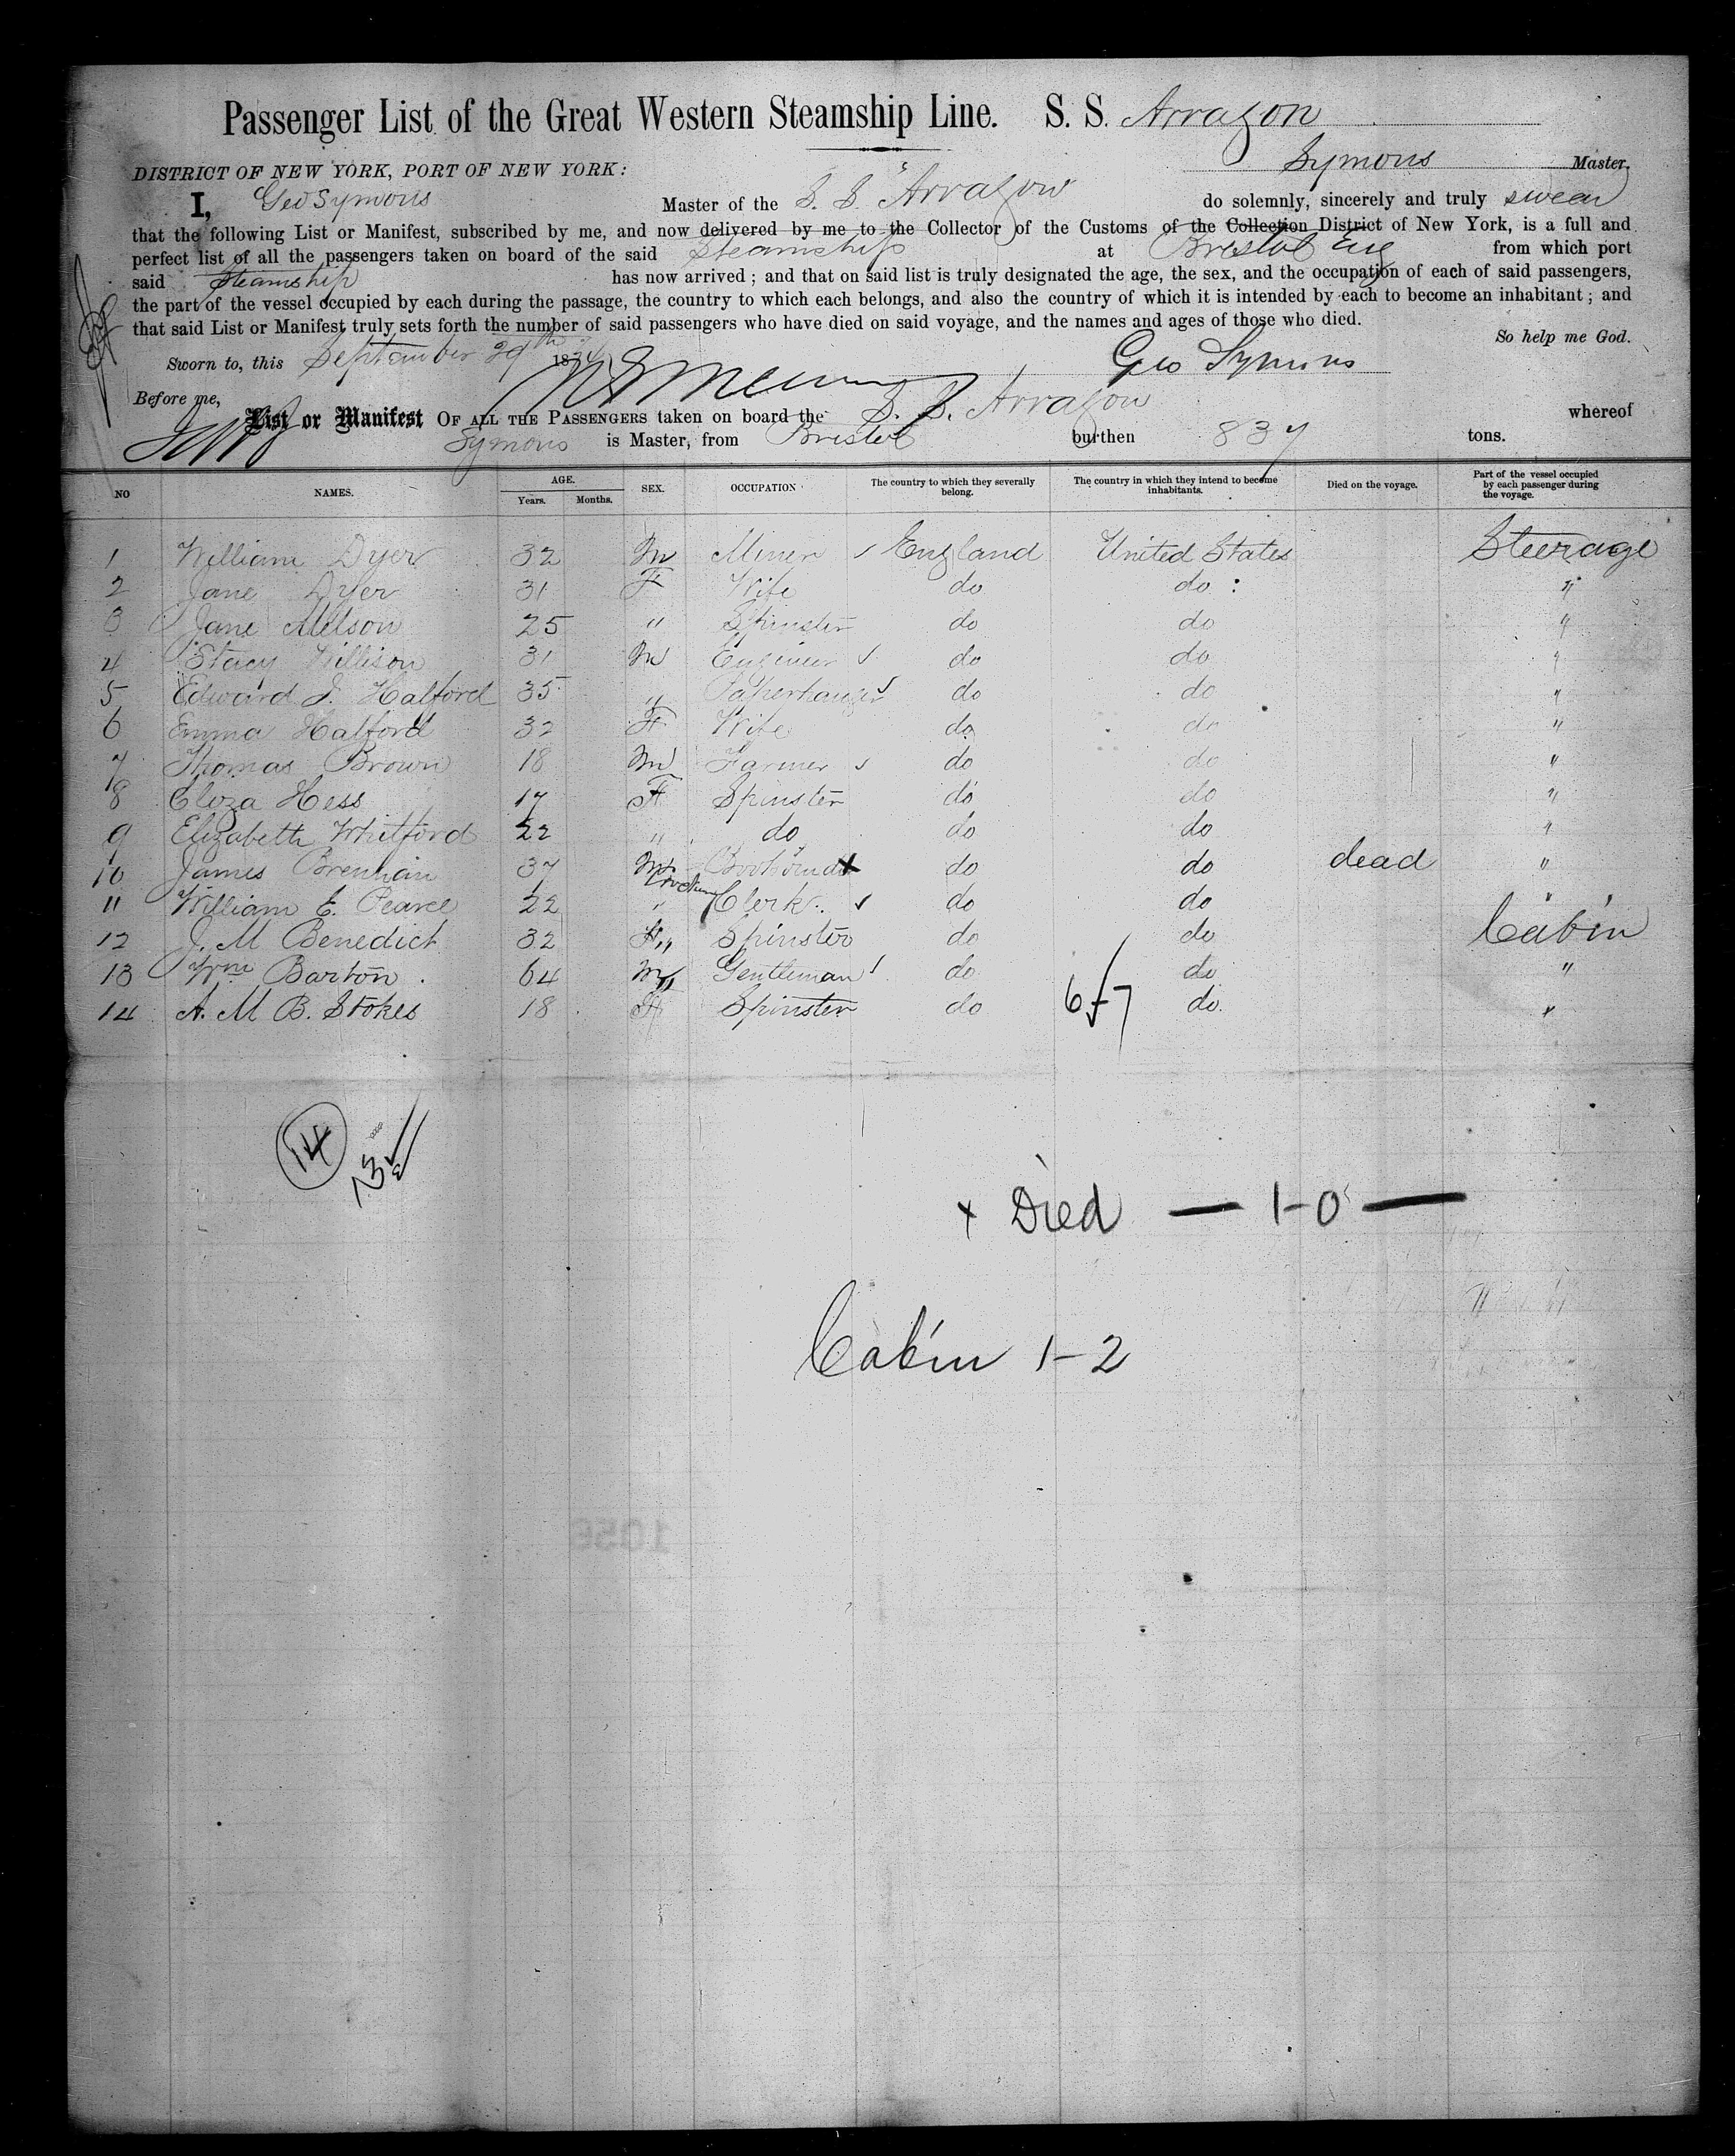 Passenger List of the Great Western Steamship Line. S. S. Arragon
Symons Master,
DISTRICT OF NEW YORK, PORT OF NEW YORK:
I, Geo Symons Master of the S. S. "Arragon do solemnly, sincerely and truly swear
that the following List or Manifest, subscribed by me, and now delivered by me to the Collector of the Customs of the Collection District of New York, is a full and
perfect list of all the passengers taken on board of the said Steamship at Bristol Eng from which port
said Steamship has now arrived; and that on said list is truly designated the age, the sex, and the occupation of each of said passengers,
the part of the vessel occupied by each during the passage, the country to which each belongs, and also the country of which it is intended by each to become an inhabitant; and
that said List or Manifest truly sets forth the number of said passengers who have died on said voyage, and the names and ages of those who died.
So help me God.
Sworn to, this September 29th 187 Geo Symons
Before me,
List or Manifest OF ALL THE PASSENGERS taken on board the S. S. Arragon whereof
Symons is Master, from Bristol burthen 837 tons.
NO NAMES. AGE. Years. Months. SEX. OCCUPATION The country to which they severally belong. The country in which they intend to become inhabitants. Died on the voyage. Part of the vessel occupied by each passenger during the voyage.
1 William Dyer 32 M Miner ✓ England United States Steerage
2 Jane Dyer 31 F Wife do do "
3 Jane 25 " Spinster do do "
4 Stacy Willison 31 M Engineer ✓ do do "
5 Edward J. Halford 35 " Paperhanger ✓ do do "
6 Emma Halford 32 F Wife do do "
7 Thomas Brown 18 M Farmer ✓ do do "
8 Eloza Hess 17 F Spinster do do "
9 Elizabeth Whitford 22 " do do do "
10 James Brenhan 37 M x do do dead "
11 William E. Pearce 22 " Clerk ✓ do do "
12 J. M Benedict 32 F " Spinster do do Cabin
13 Wm Barton 64 M " Gentleman ✓ do do "
14 A. M B. Stokes 18 F Spinster do 6-7 do "
14
x Died — 1-0 —
Cabin 1-2
1056